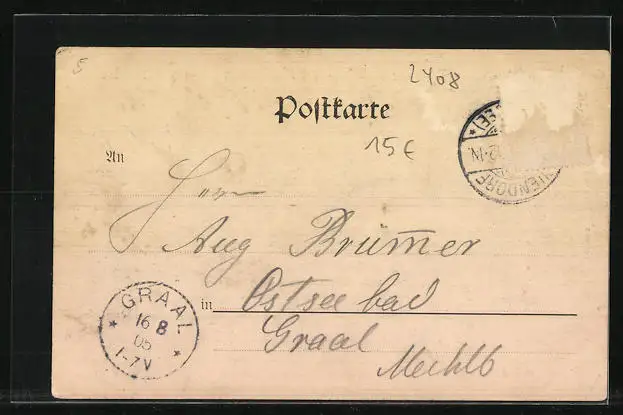 5
2408
Postkarte
15€
An
Herrn
Aug Brümer
in Ostseebad
Graal
Mecklb
GRAAL
16 8
05
1-7V